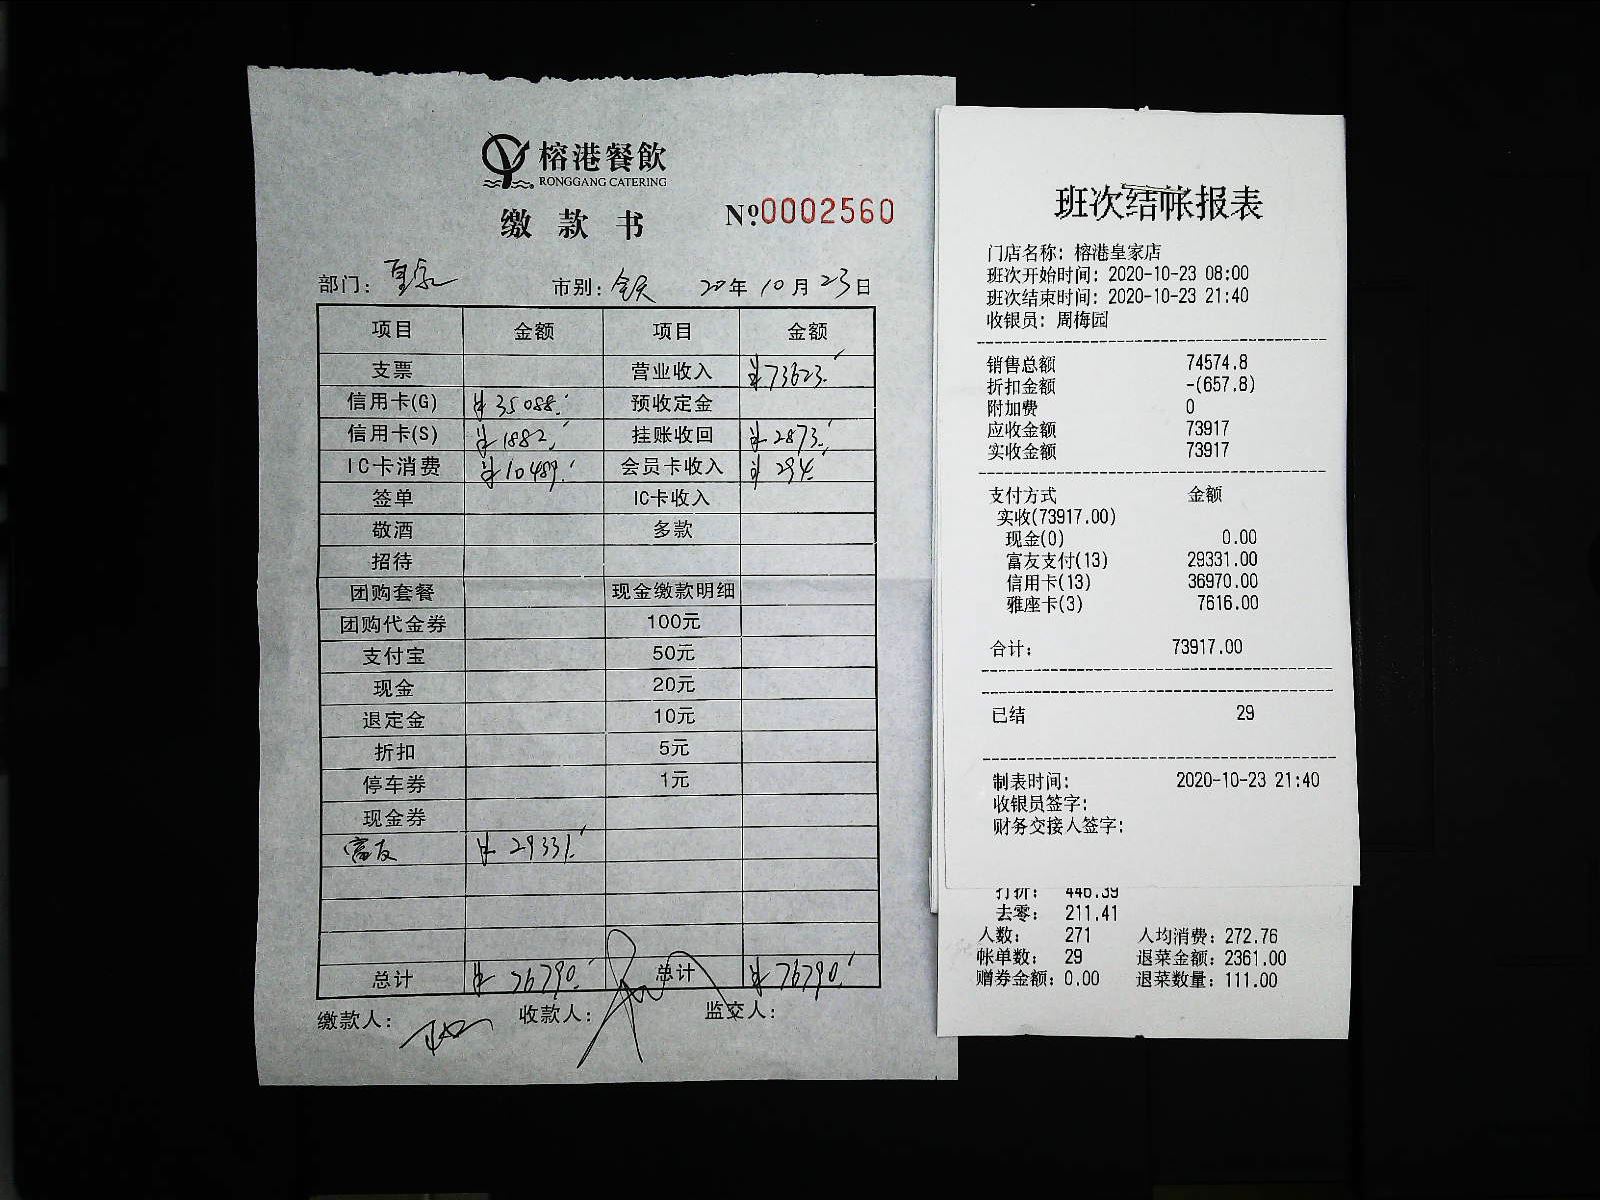 榕港餐飲
RONGGANG CATERING
缴款书 №0002560
部门：皇家 市别：全天 20年10月23日
项目 金额 项目 金额
支票 营业收入 ¥73623.
信用卡(G) ¥35088. 预收定金
信用卡(S) ¥1882. 挂账收回 ¥2873.
IC卡消费 ¥10489. 会员卡收入 ¥294.
签单 IC卡收入
敬酒 多款
招待
团购套餐 现金缴款明细
团购代金券 100元
支付宝 50元
现金 20元
退定金 10元
折扣 5元
停车券 1元
现金券
富友 ¥29331.
总计 ¥76790. 总计 ¥76790.
缴款人： 收款人： 监交人：
班次结帐报表
门店名称：榕港皇家店
班次开始时间：2020-10-23 08:00
班次结束时间：2020-10-23 21:40
收银员：周梅园
销售总额 74574.8
折扣金额 -(657.8)
附加费 0
应收金额 73917
实收金额 73917
支付方式 金额
实收(73917.00)
现金(0) 0.00
富友支付(13) 29331.00
信用卡(13) 36970.00
雅座卡(3) 7616.00
合计： 73917.00
已结 29
制表时间： 2020-10-23 21:40
收银员签字：
财务交接人签字：
打折： 446.39
去零： 211.41
人数： 271 人均消费：272.76
帐单数： 29 退菜金额：2361.00
赠券金额：0.00 退菜数量：111.00